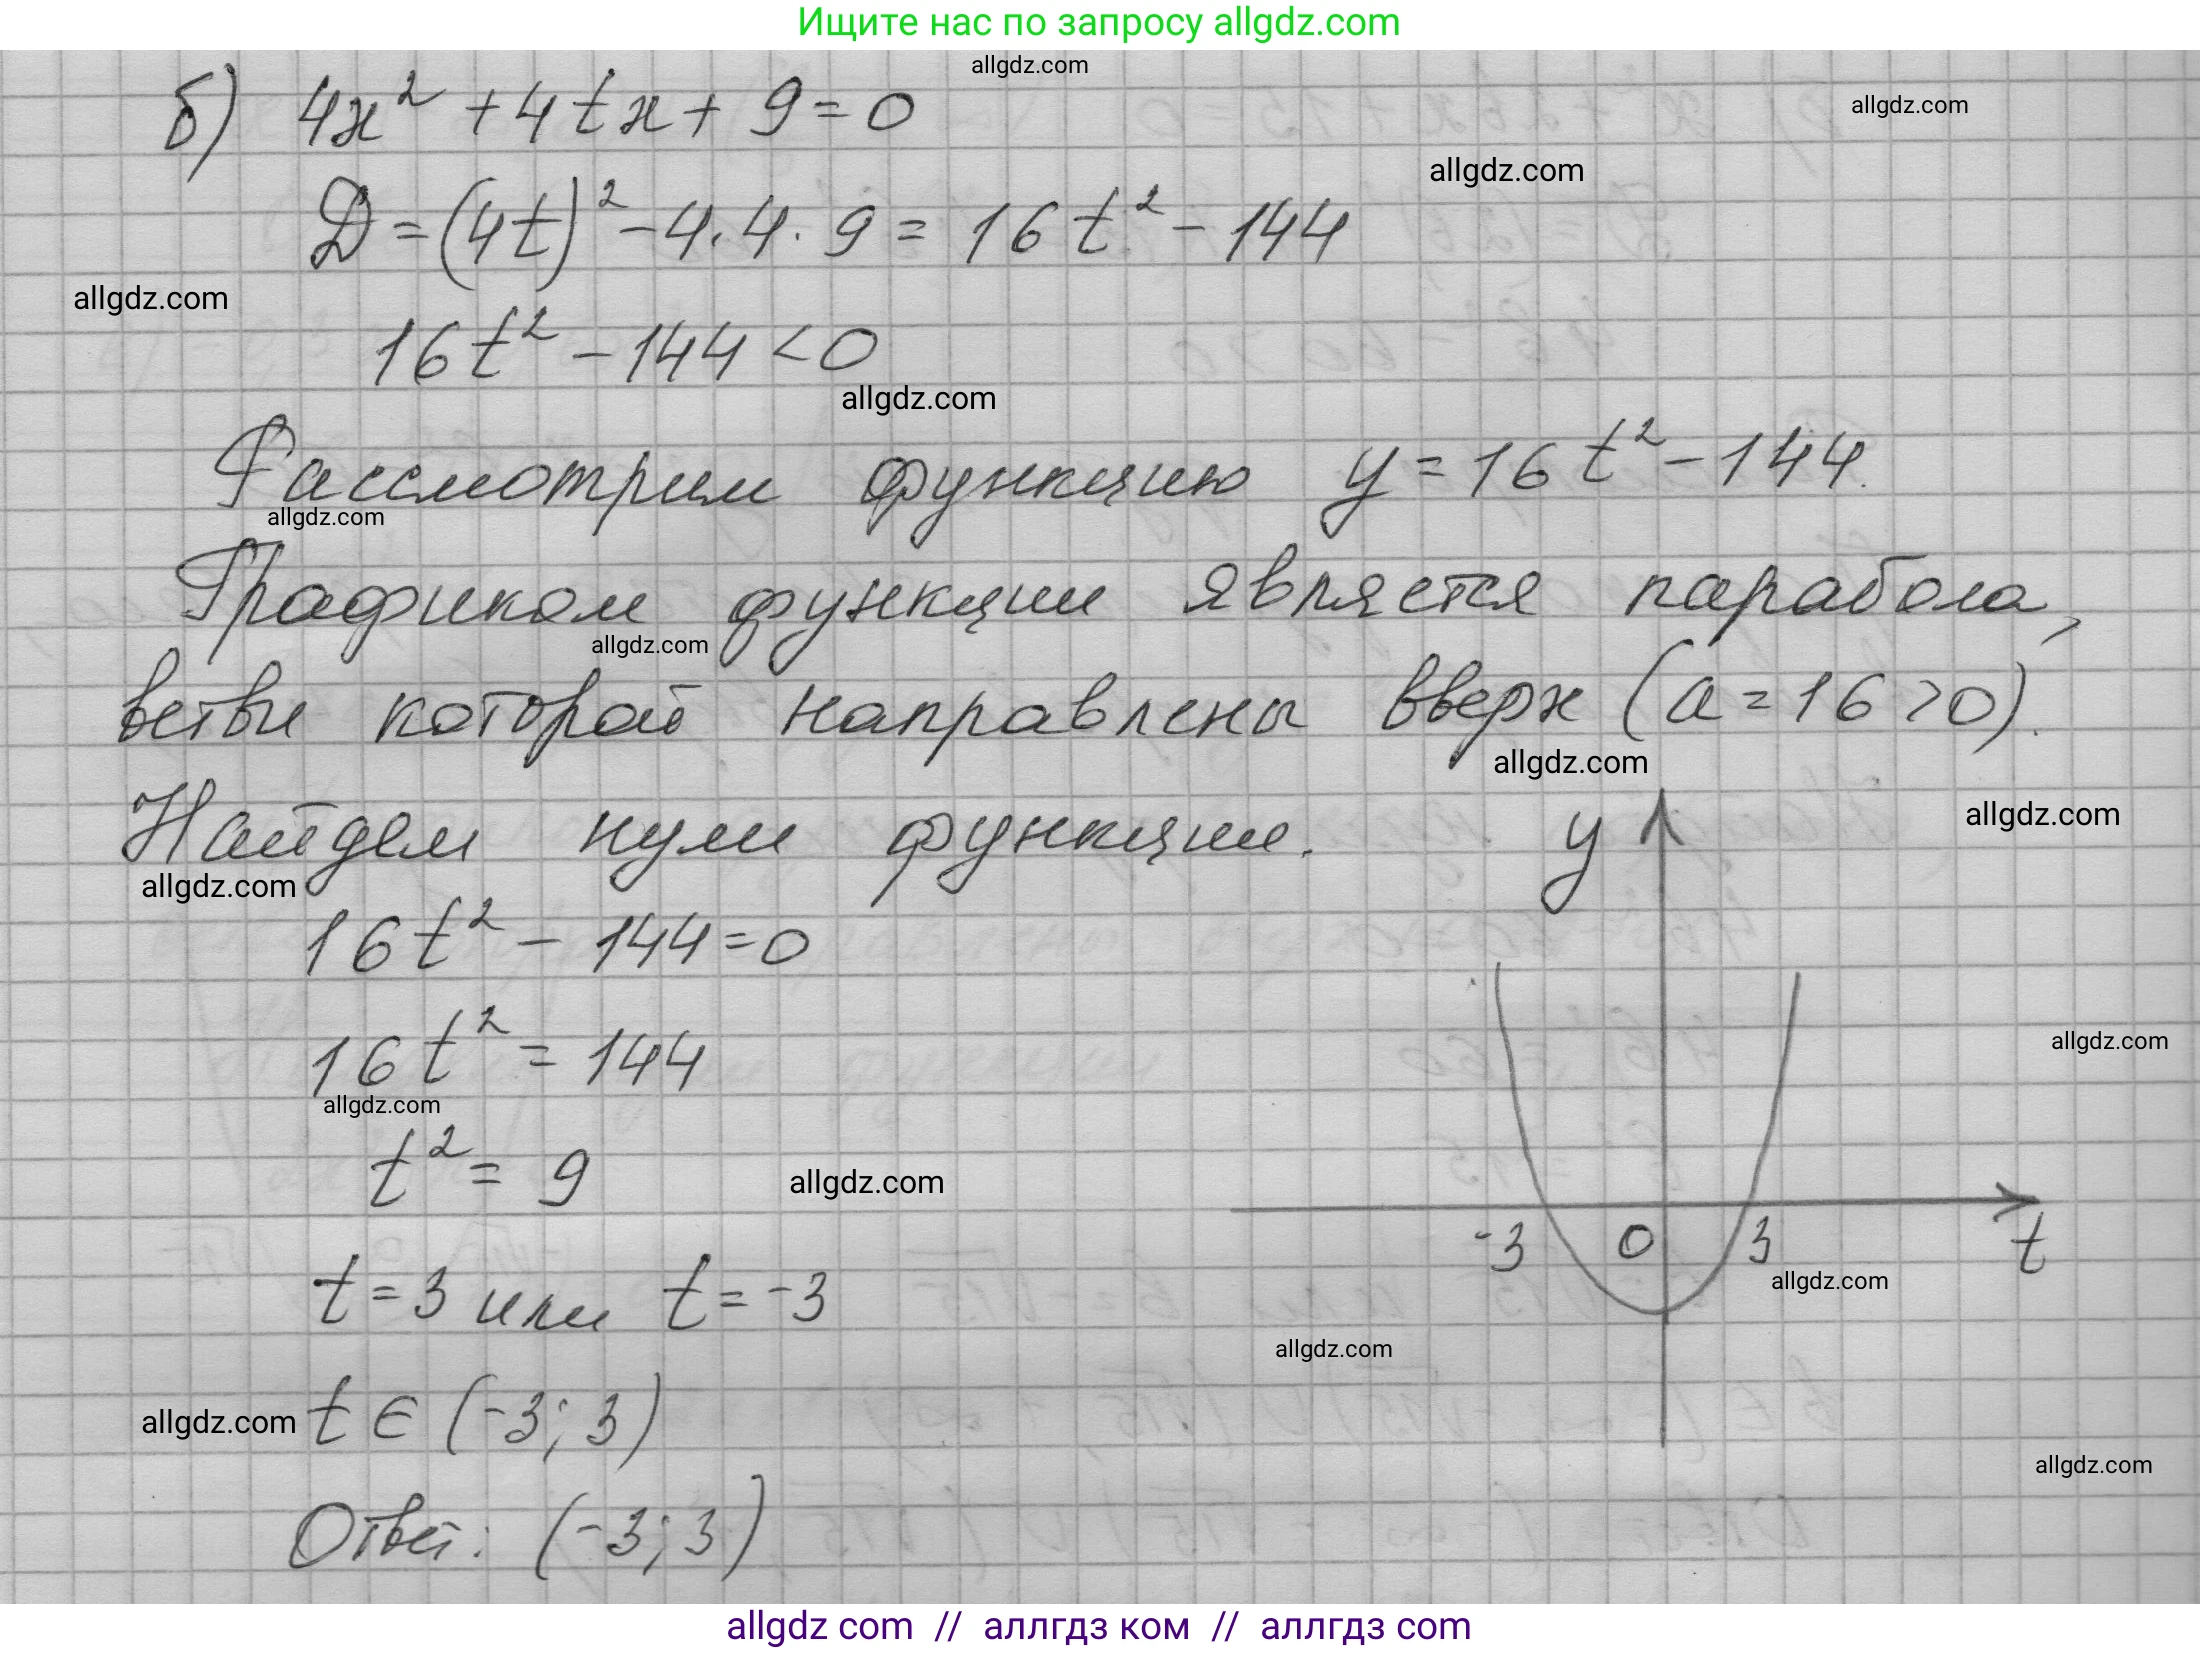 Ищите нас по запросу allgdz.com
allgdz.com
б) 4x² + 4tx + 9 = 0
allgdz.com
allgdz.com
D = (4t)² - 4 · 4 · 9 = 16t² - 144
allgdz.com
16t² - 144 < 0
allgdz.com
Рассмотрим функцию y = 16t² - 144.
allgdz.com
Графиком функции является парабола,
allgdz.com
ветви которой направлены вверх (a = 16 > 0).
allgdz.com
allgdz.com
Найдем нули функции.
y
allgdz.com
16t² - 144 = 0
16t² = 144
allgdz.com
allgdz.com
t² = 9
allgdz.com
-3 0 3 t
allgdz.com
t = 3 или t = -3
allgdz.com
allgdz.com
t ∈ (-3; 3)
allgdz.com
Ответ: (-3; 3)
allgdz com // аллгдз ком // аллгдз com